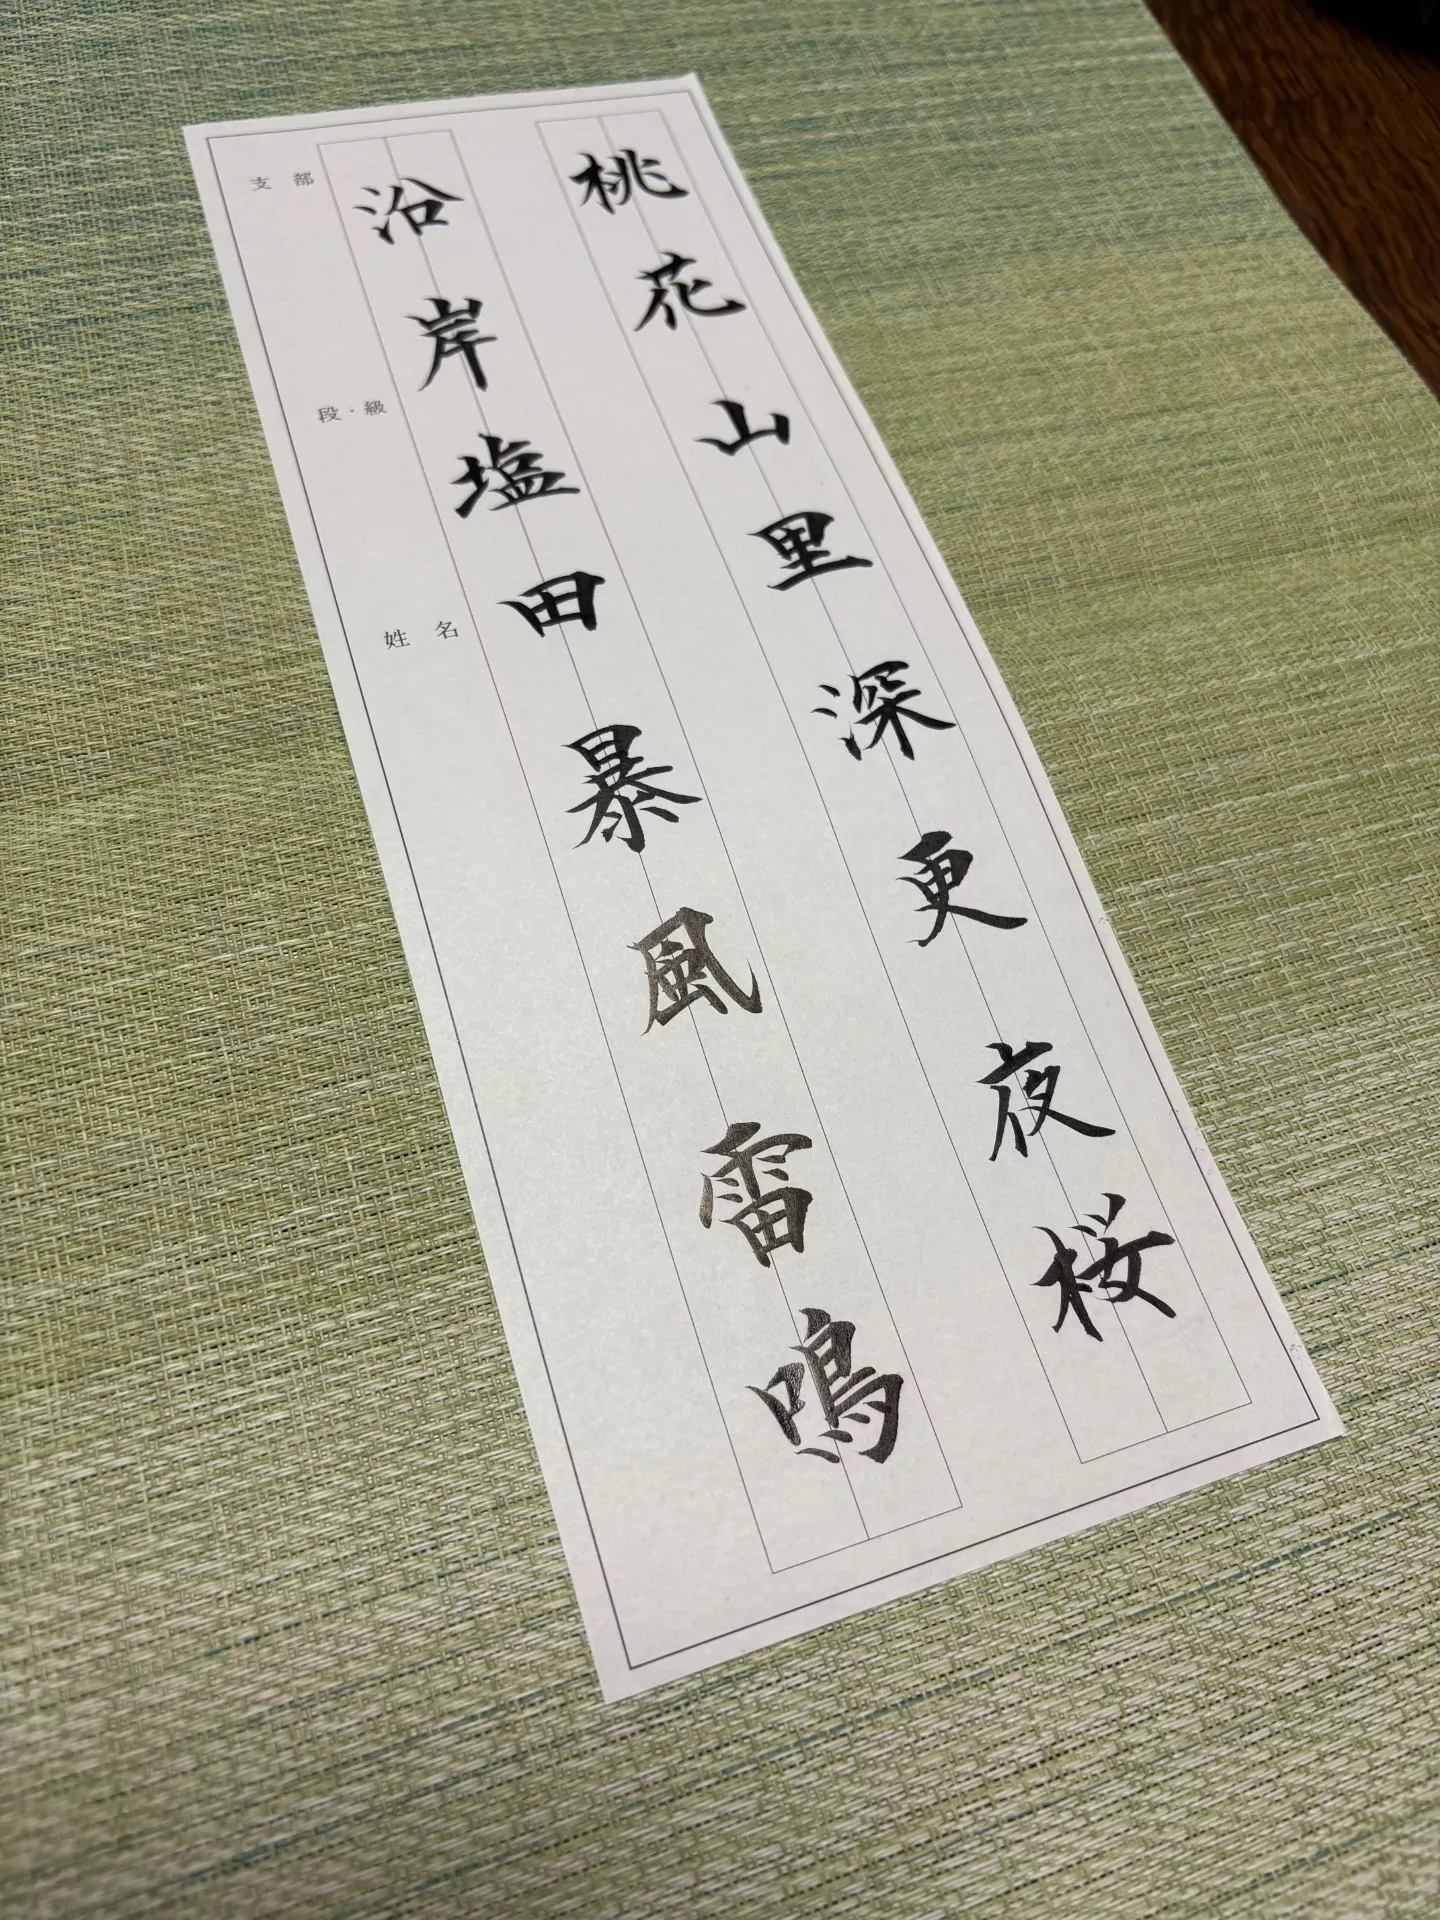 桃花山里深更夜桜
沿岸塩田暴風雷鳴
支部
段・級
姓名